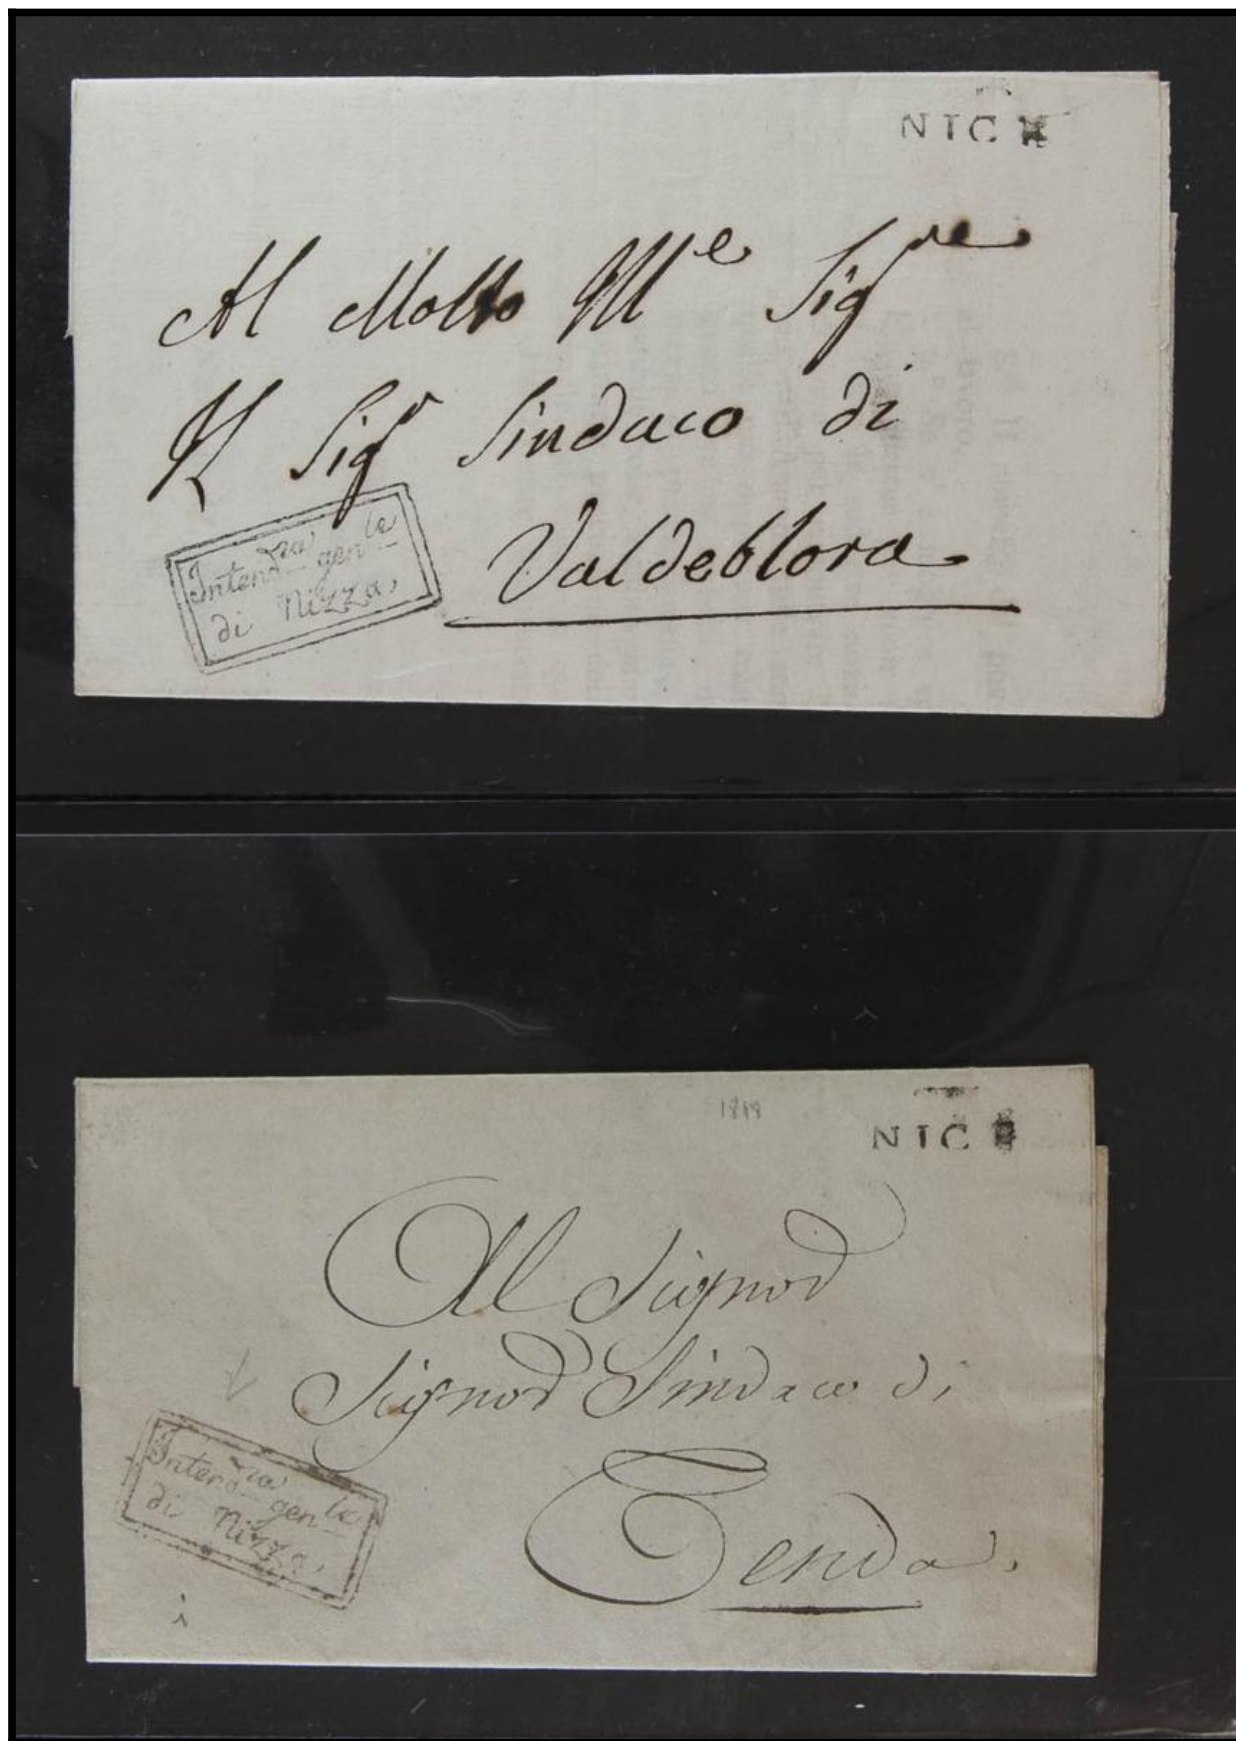 NIC
Al Molto Ill.e Sig.re
Il Sig.r Sindaco di
Valdeblora
Intend.za gen.le
di Nizza.
1819
NIC
Al Signor
Signor Sindaco di
Tenda.
Intend.za gen.le
di Nizza.